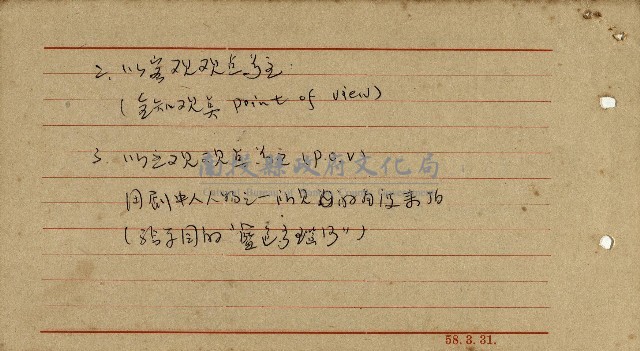 2. 以客观观点为主
(全知观点 point of view)
3. 以主观观点为主 (P.O.V)
用剧中人人物之一所见的角度来拍
南投縣政府文化局
58.3.31.